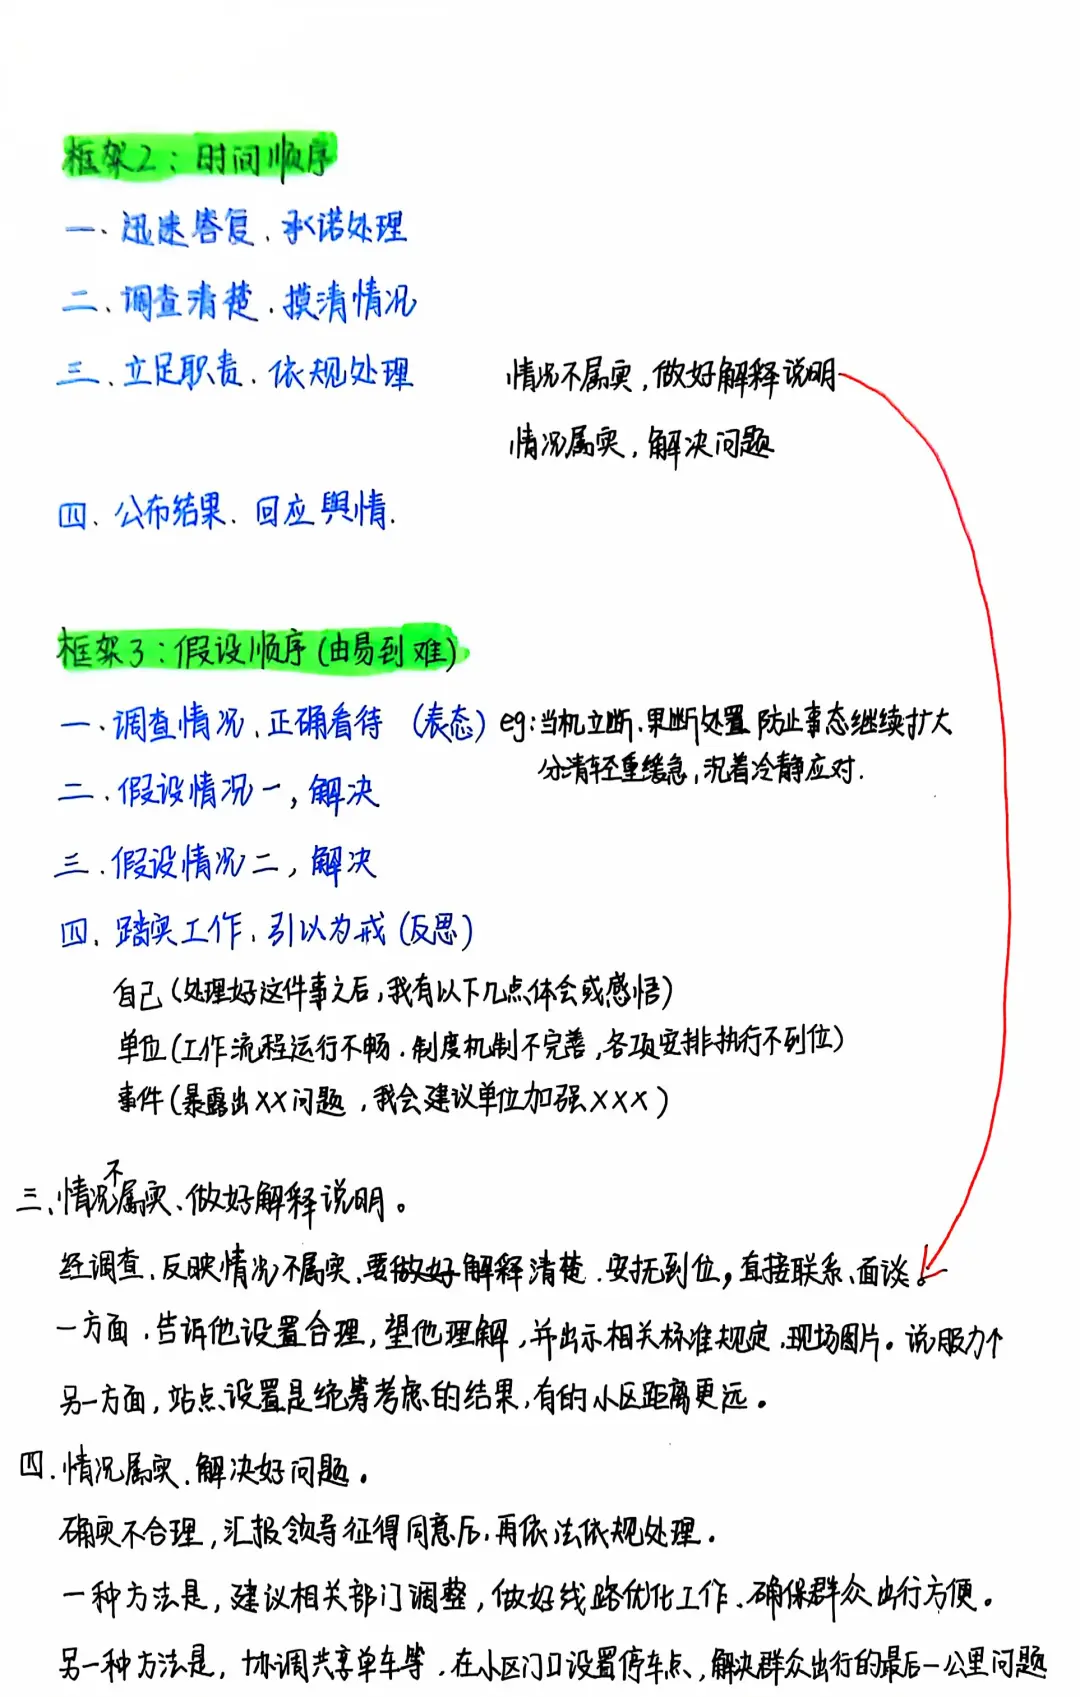 框架2：时间顺序
一、迅速答复、承诺处理
二、调查清楚、摸清情况
三、立足职责、依规处理
情况不属实，做好解释说明
情况属实，解决问题
四、公布结果、回应舆情.
框架3：假设顺序(由易到难)
一、调查情况、正确看待 (表态) eg:当机立断、果断处置、防止事态继续扩大
分清轻重缓急，沉着冷静应对.
二、假设情况一，解决
三、假设情况二，解决
四、踏实工作、引以为戒(反思)
自己(处理好这件事之后，我有以下几点体会或感悟)
单位(工作流程运行不畅、制度机制不完善，各项安排执行不到位)
事件(暴露出XX问题，我会建议单位加强XXX)
三、情况不属实、做好解释说明。
经调查、反映情况不属实、要做好解释清楚、安抚到位，直接联系、面谈。
一方面、告诉他设置合理，望他理解，并出示相关标准规定、现场图片。说服力个
另一方面，站点设置是统筹考虑的结果，有的小区距离更远。
四、情况属实、解决好问题。
确实不合理，汇报领导征得同意后、再依法依规处理。
一种方法是，建议相关部门调整，做好线路优化工作、确保群众出行方便。
另一种方法是，协调共享单车等、在小区门口设置停车点、解决群众出行的最后一公里问题